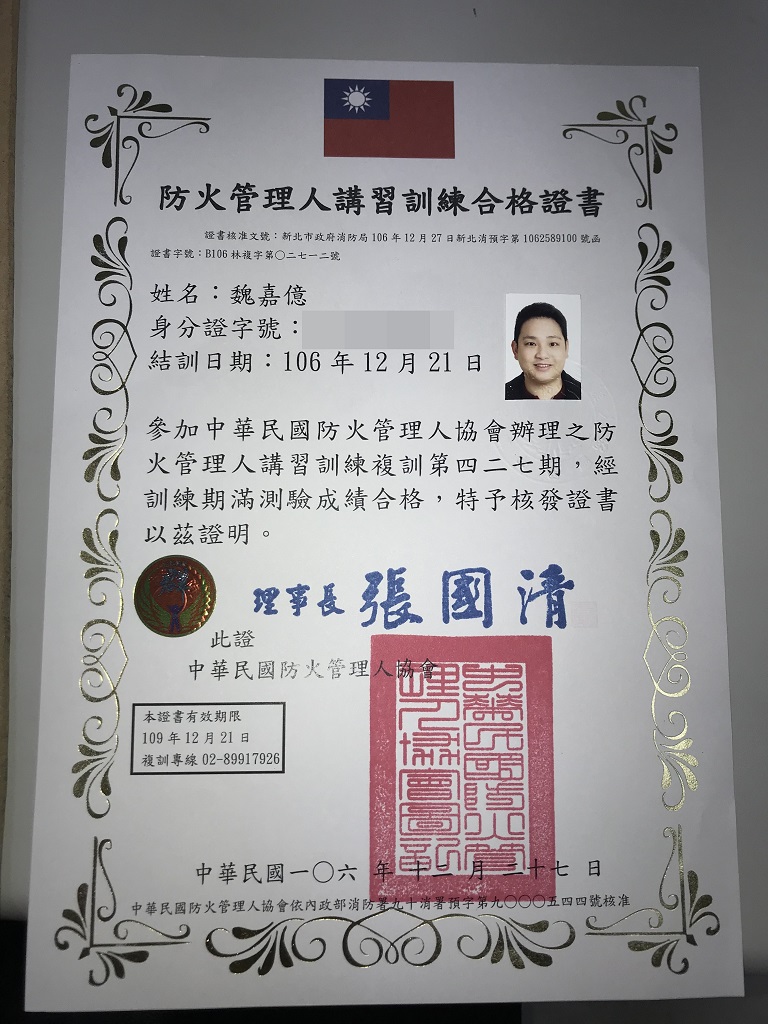 防火管理人講習訓練合格證書
證書核准文號：新北市政府消防局106年12月27日新北消預字第1062589100號函
證書字號：B106林複字第〇二七一二號
姓名：魏嘉億
身分證字號：
結訓日期：106年12月21日
參加中華民國防火管理人協會辦理之防
火管理人講習訓練複訓第四二七期，經
訓練期滿測驗成績合格，特予核發證書
以茲證明。
理事長 張國清
此證
中華民國防火管理人協會
本證書有效期限
109年12月21日
複訓專線02-89917926
中華民國防火管
理人協會圖記
中華民國一〇六年十二月二十七日
中華民國防火管理人協會依內政部消防署九十消署預字第九〇〇〇五四四號核准